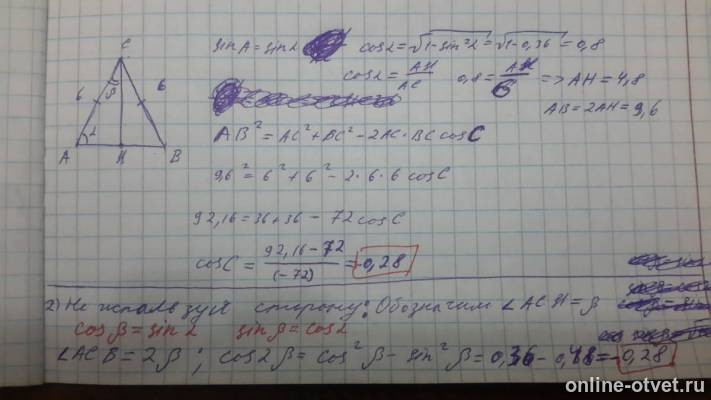 C
6 β 6
α
A H B
sin A = sin α cos α = √1-sin²α = √1-0,36 = 0,8
cos α = AH/AC 0,8 = AH/6 => AH = 4,8
AB = 2AH = 9,6
AB² = AC² + BC² - 2AC · BC cos C
9,6² = 6² + 6² - 2 · 6 · 6 cos C
92,16 = 36 + 36 - 72 cos C
cos C = 92,16 - 72 / (-72) = -0,28
2) Не используй сторону: Обозначим ∠ACH = β
cos β = sin α sin β = cos α
∠ACB = 2β ; cos 2β = cos²β - sin²β = 0,36 - 0,48 = -0,28
online-otvet.ru